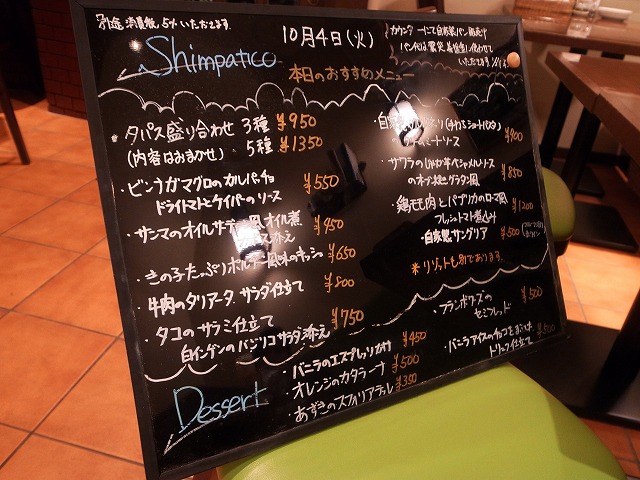 別途 消費税 5% いただきます。
カウンターにて自家製パン販売中
パン代は震災義援金に使わせて
いただきます
Shimpatico
10月4日(火)
本日のおすすめメニュー
・タパス盛り合わせ 3種 ¥950
(内容はおまかせ) 5種 ¥1350
・ビンナガマグロのカルパッチョ
ドライトマトとケイパーのソース ¥550
・サンマのオイルサーディン風オイル煮
添え ¥950
・きの子たっぷりボルチーニ風味のキッシュ ¥650
・牛肉のタリアータ サラダ仕立て ¥800
・タコのサラミ仕立て
白インゲンのバジリコサラダ添え ¥750
・自家製
ミートソース ¥900
・サワラのじゃが芋ベシャメルソース
のオーブン焼きグラタン風 ¥850
・鶏モモ肉とパプリカのローマ風
フレッシュトマト煮込み ¥1200
・自家製サングリア ¥500
※リゾットも別であります。
Dessert
・バニラのエスプレッソがけ ¥450
・オレンジのカタラーナ ¥500
・あずきのスフォリアテッレ ¥350
・フランボワーズの
セミフレッド ¥500
・バニラアイスのチョコをまぶした
トリュフ仕立て ¥500